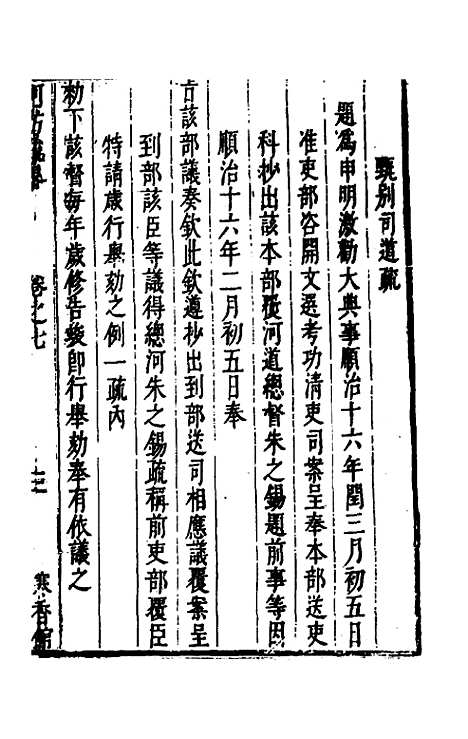 甄别司道疏
題爲申明激勸大典事順治十六年閏三月初五日
准吏部咨開文選考功清吏司案呈奉本部送吏
科抄出該本部覆河道總督朱之錫題前事等因
順治十六年二月初五日奉
旨該部議奏欽此欽遵抄出到部送司相應議覆案呈
到部該臣等議得總河朱之錫疏稱前吏部覆臣
特請歲行舉劾之例一疏內
勑下該督每年歲修告竣卽行舉劾奉有依議之
河防疏畧
卷之七
寒香館